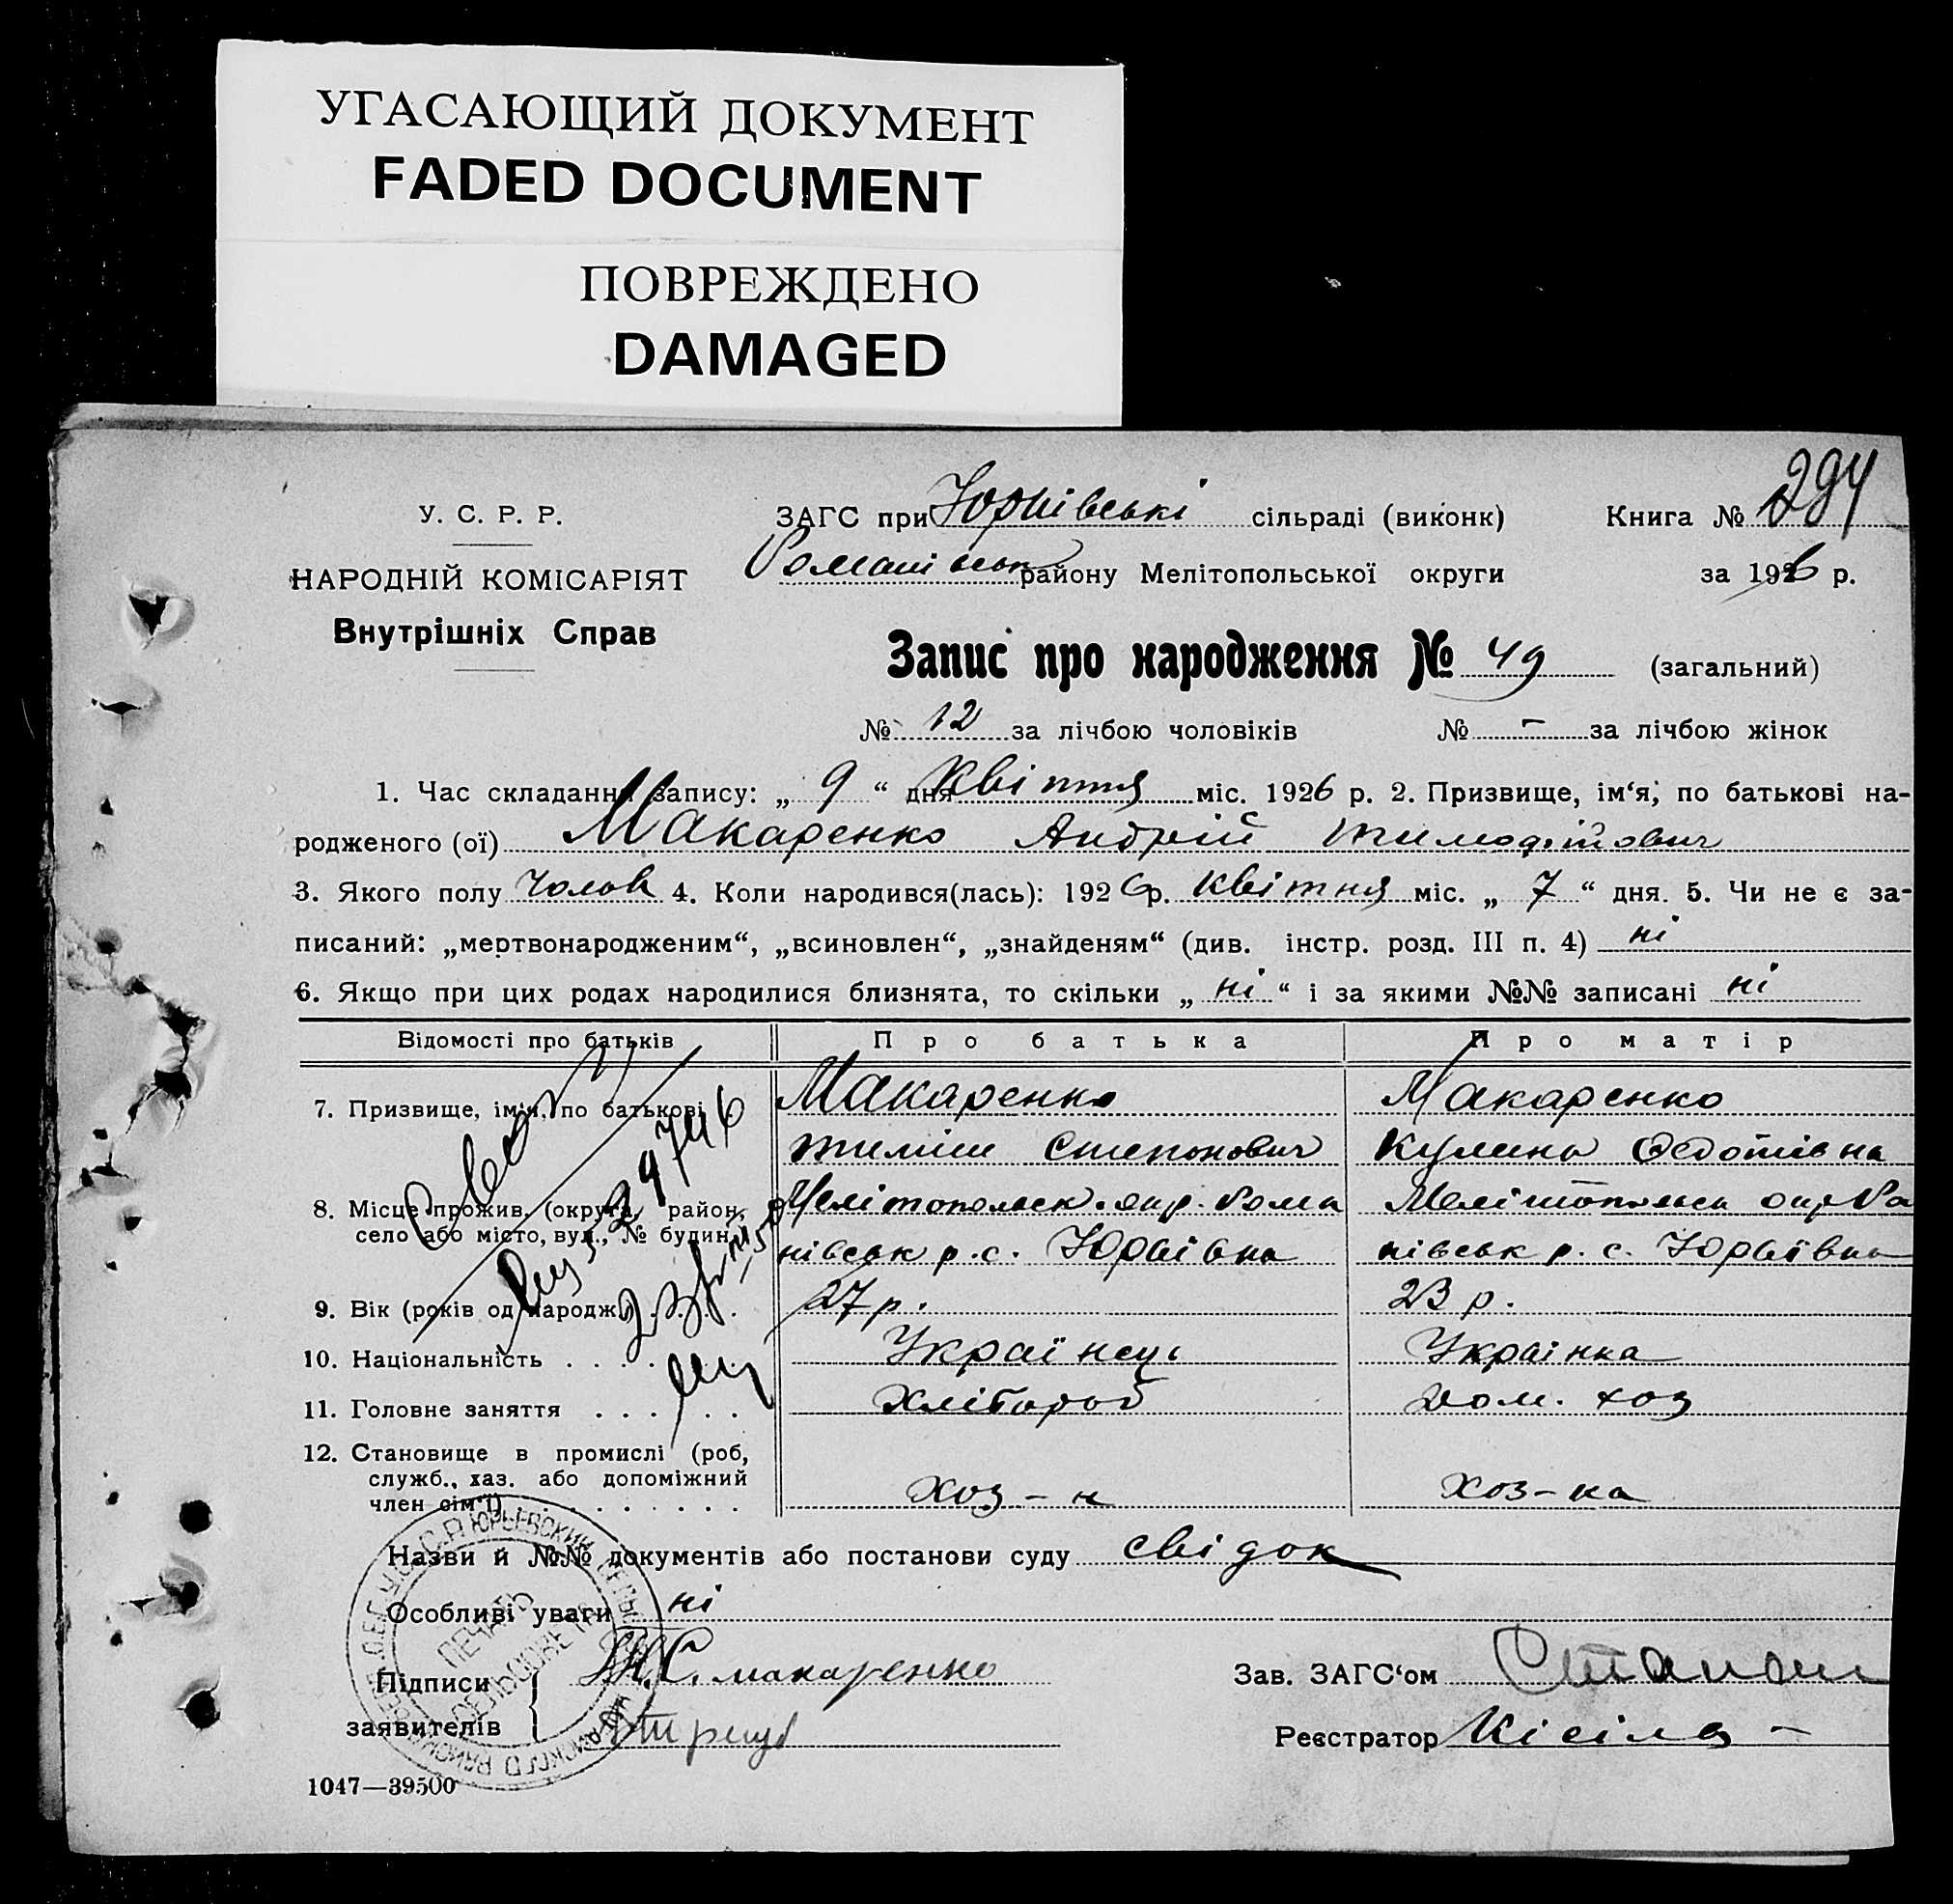 УГАСАЮЩИЙ ДОКУМЕНТ
FADED DOCUMENT
ПОВРЕЖДЕНО
DAMAGED
У. С. Р. Р.
НАРОДНІЙ КОМІСАРІЯТ
Внутрішніх Справ
ЗАГС при Юрївські сільраді (виконк)
Романівськ району Мелітопольської округи
Книга № 294
за 1926 р.
Запис про народження № 49 (загальний)
№ 12 за лічбою чоловіків № - за лічбою жінок
1. Час складання запису: „ 9 “ дня Квітня міс. 1926 р. 2. Призвище, ім‘я, по батькові на-
родженого (ої) Макаренко Андрій Тимофійович
3. Якого полу Чолов 4. Коли народився(лась): 1926 р. Квітня міс. „ 7 “ дня. 5. Чи не є за-
писаний: „мертвонародженим“, „всиновлен“, „знайденям“ (див. інстр. розд. III п. 4) ні
6. Якщо при цих родах народилися близнята, то скільки „ ні “ і за якими №№ записані ні
Відомості про батьків Про батька Про матір
7. Призвище, ім‘я, по батькові Макаренко Макаренко
Тиміш Степонович Кулина Федотівна
8. Місце прожив. (округа, район, Мелітопольск. окр. Рома Мелітопольск окр Ро
село або місто, вул., № будин. нівськ р. с. Юрївка нівськ р. с. Юрївка
9. Вік (років од народж.) 27 р. 23 р.
10. Національність Українець Українка
11. Головне заняття Хлібороб Дом. хоз
12. Становище в промислі (роб,
служб., хаз. або допоміжний
член сім‘ї) Хоз-н Хоз-ка
Назви й №№ документів або постанови суду свідок
Особливі уваги ні
Підписи Т.С. Макаренко
заявителів
Зав. ЗАГС‘ом
Реєстратор Кісіль -
1047—39500